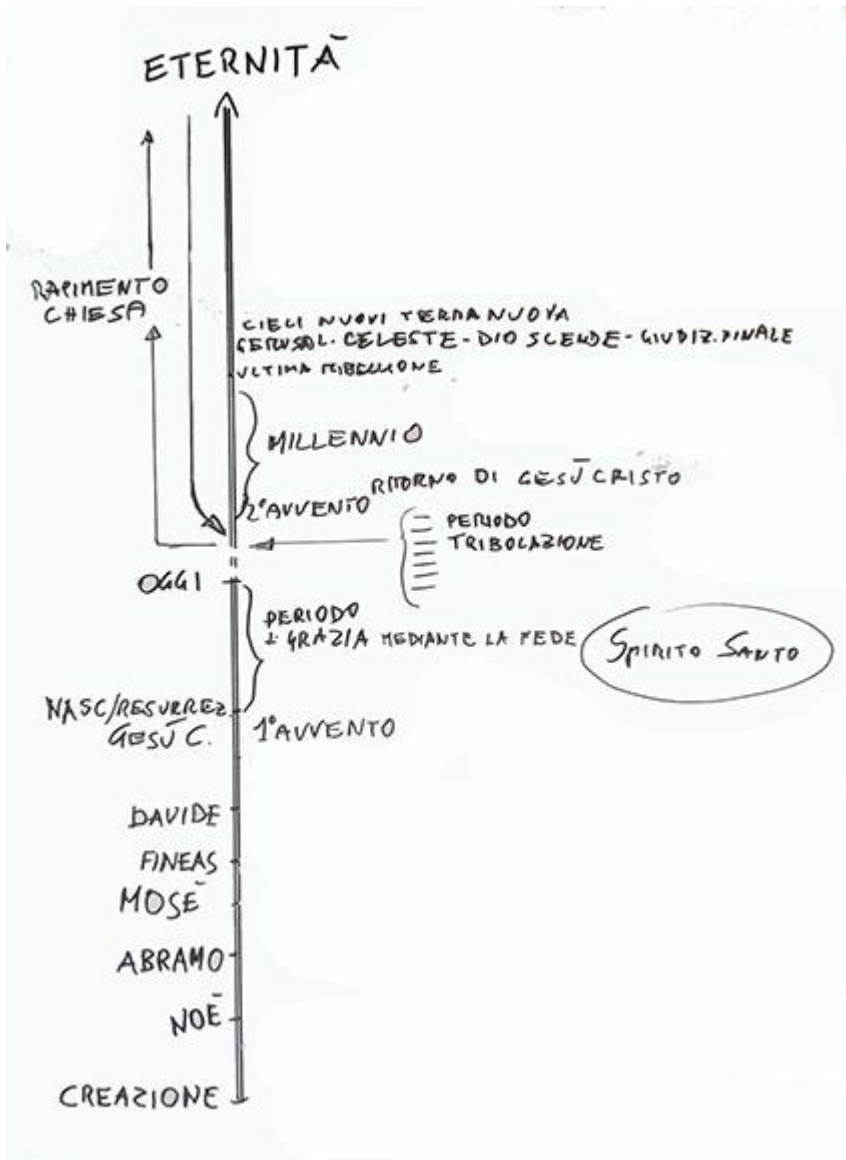 ETERNITÀ
RAPIMENTO
CHIESA
CIELI NUOVI TERRA NUOVA
GERUSAL. CELESTE - DIO SCENDE - GIUDIZ. FINALE
ULTIMA RIBELLIONE
MILLENNIO
RITORNO DI GESÙ CRISTO
2° AVVENTO
PERIODO
TRIBOLAZIONE
OGGI
PERIODO
GRAZIA MEDIANTE LA FEDE
SPIRITO SANTO
NASC/RESURREZ.
GESÙ C.
1° AVVENTO
DAVIDE
FINEAS
MOSÈ
ABRAMO
NOÈ
CREAZIONE